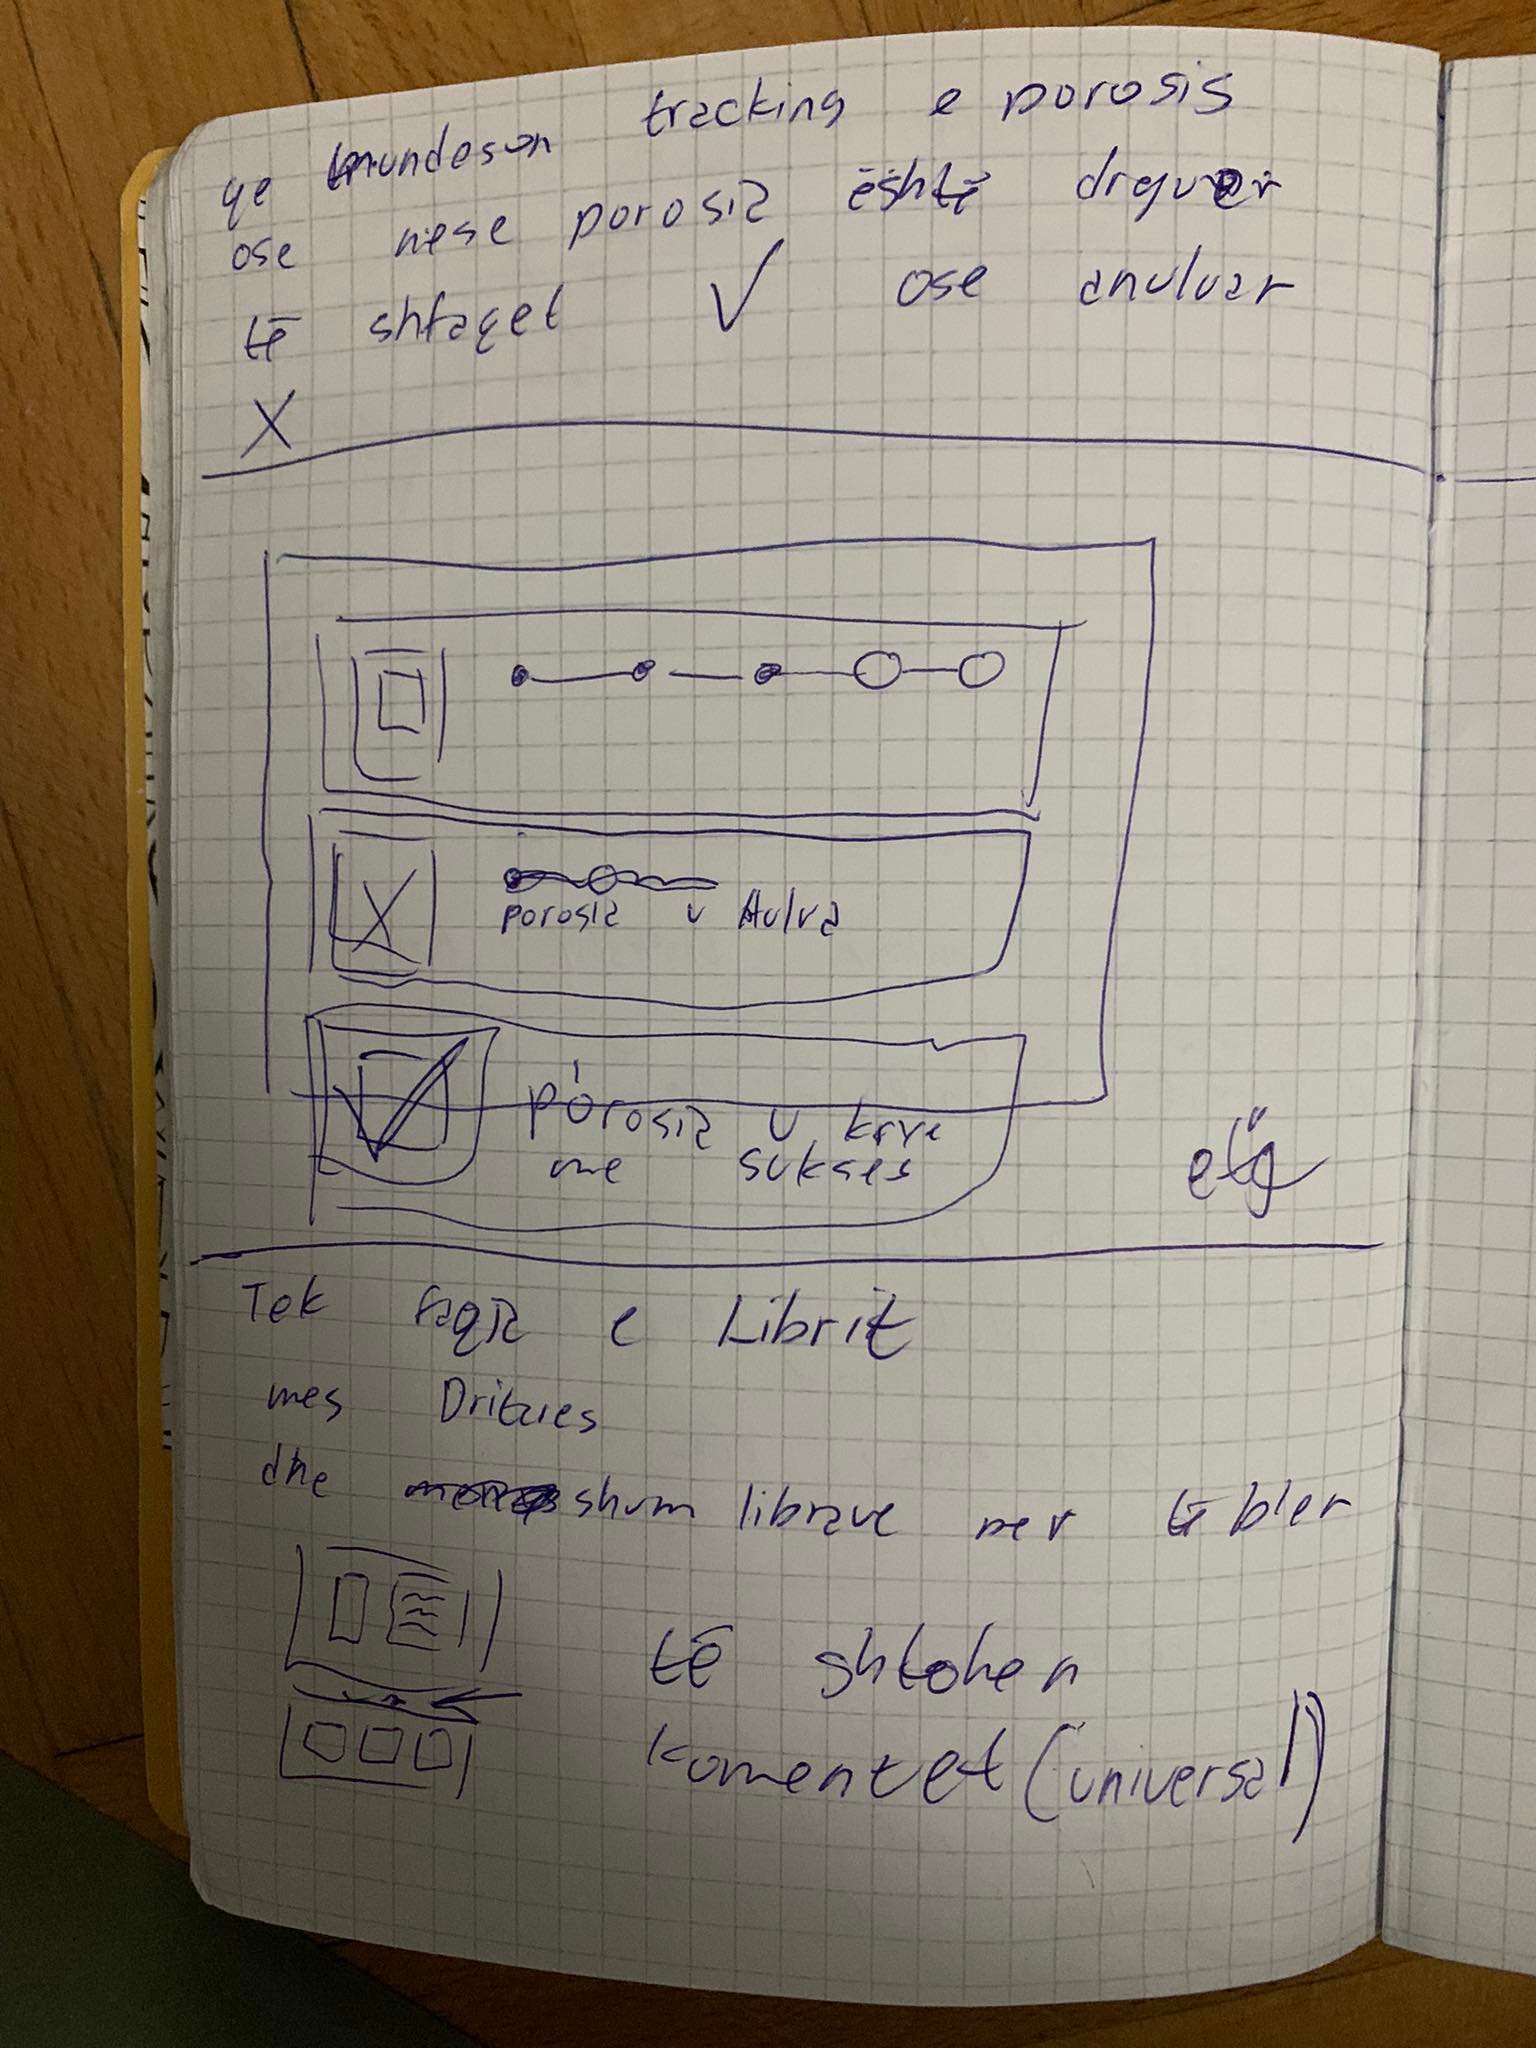 qe mundeson tracking e porosis
ose nese porosia është drguar
të shfaqet ✓ ose anuluar
X
porosia u Aulua
porosia u krye
me sukses
Tek faqja e Librit
mes Dritares
dhe shum librave per të bler
të shtohen
komentet (universal)